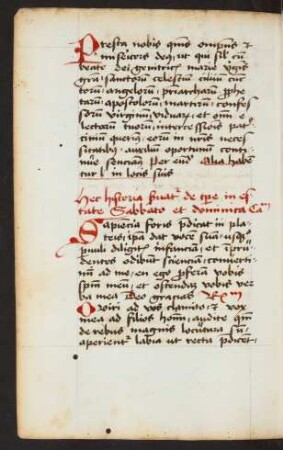 Presta nobis qs omps et
misericors deus ut qui sil cum
beate dei genitricis marie virgis
gra sanctorum celestium civium cunc
torum angelorum priarcharum pphe
tarum apostolorum martirum confes
sorum virginum viduarum et omnium e
lectorum tuorum intercessiois pat
cinium querim eorum in vnis neces
sitatibus auxilium oportunum conti
nue senciam Per eund Alia haben
tur in locis suis
Hec historia de tpe in es
tate Sabbato et dominica
Sapiencia foris pdicat in pla
teis ipa dat voce sua usqz
pvuli diligitis infanciam et impru
dentes odibunt scienciam converti
mini ad me en ego pferam vobis
spm meum et ostendam vobis ver
ba mea Deo gracias
O viri ad vos clamito et vox
mea ad filios hoim audite qm
de rebus magnis locutura sum
aperientur labia ut recta pdicet